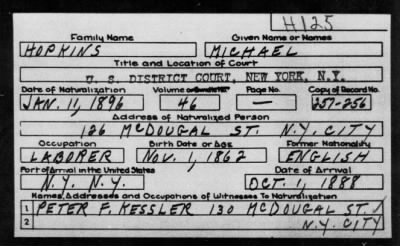 H125
Family Name Given Name or Names
HOPKINS MICHAEL
Title and Location of Court
U. S. DISTRICT COURT, NEW YORK, N.Y.
Date of Naturalization Volume or Bundle No. Page No. Copy of Record No.
JAN. 11, 1896 46 — 257-256
Address of Naturalized Person
126 McDOUGAL ST. N.Y. CITY
Occupation Birth Date or Age Former Nationality
LABORER NOV. 1, 1862 ENGLISH
Port of Arrival in the United States Date of Arrival
N.Y. N.Y. OCT. 1, 1888
Names, Addresses and Occupations of Witnesses To Naturalization
1 PETER F. KESSLER 130 McDOUGAL ST.
2 N.Y. CITY